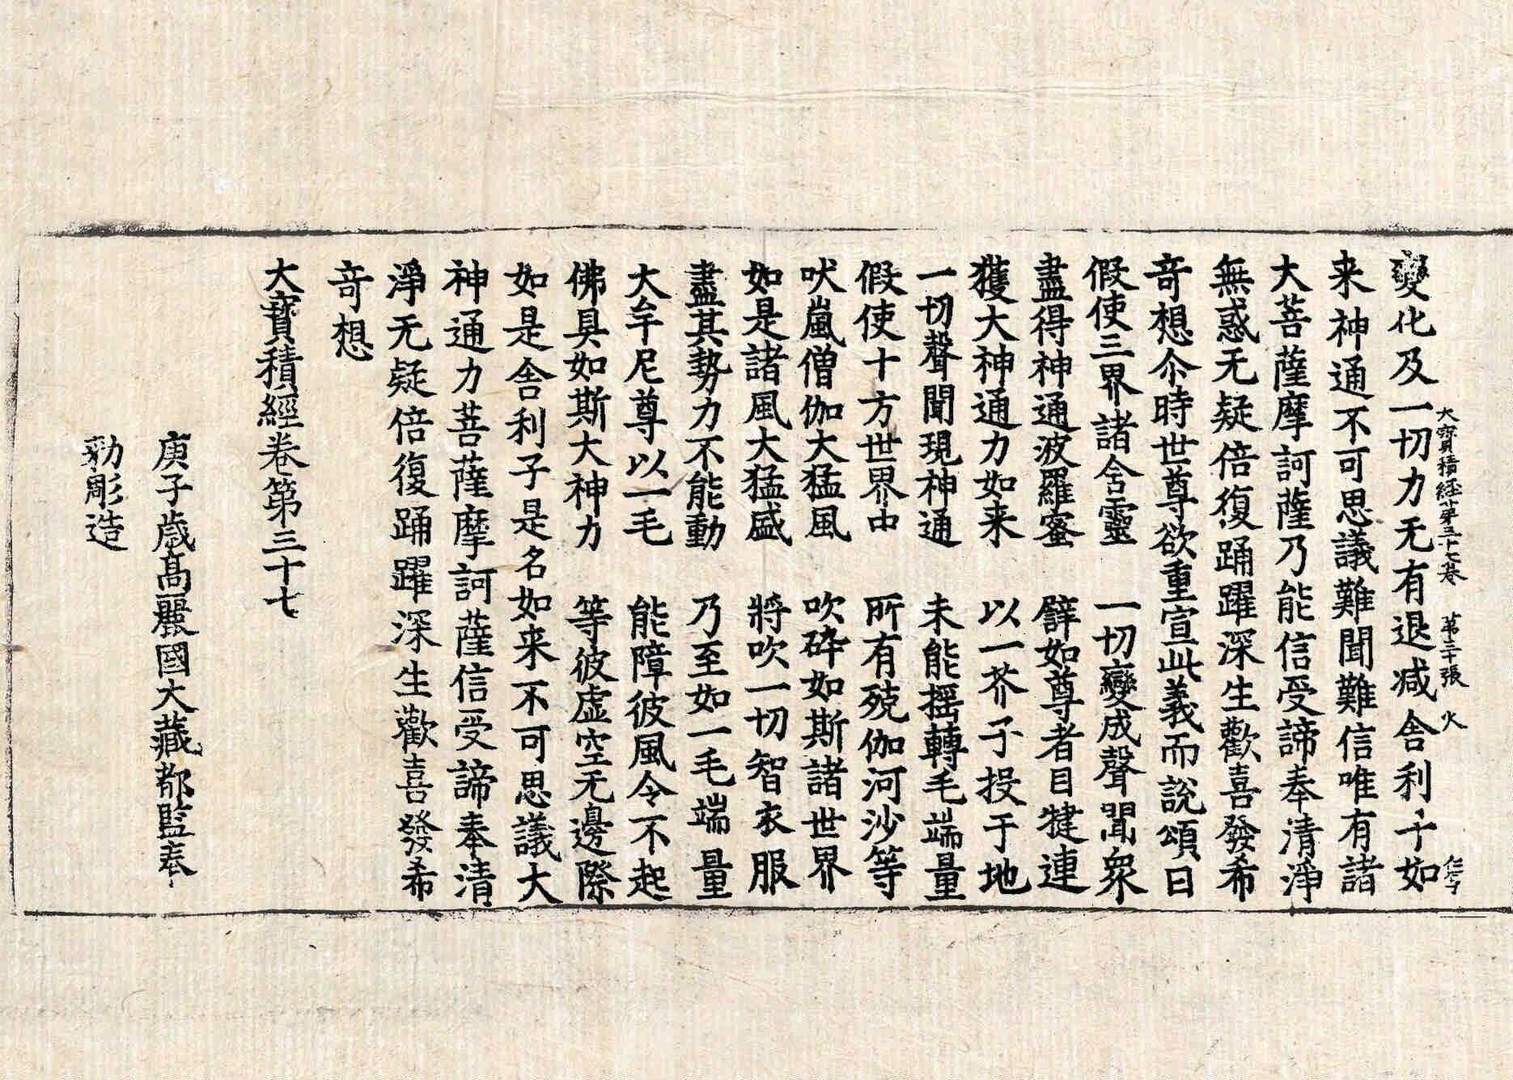 大寶積經第三十七卷 第二十張 火
變化及一切力无有退減舍利子如
来神通不可思議難聞難信唯有諸
大菩薩摩訶薩乃能信受諦奉清淨
無惑无疑倍復踊躍深生歡喜發希
奇想尒時世尊欲重宣此義而說頌曰
假使三界諸含靈 一切變成聲聞衆
盡得神通波羅蜜 譬如尊者目揵連
獲大神通力如来 以一芥子投于地
一切聲聞現神通 未能摇轉毛端量
假使十方世界中 所有殑伽河沙等
吠嵐僧伽大猛風 吹碎如斯諸世界
如是諸風大猛盛 將吹一切智衣服
盡其勢力不能動 乃至如一毛端量
大牟尼尊以一毛 能障彼風令不起
佛具如斯大神力 等彼虚空无邊際
如是舍利子是名如来不可思議大
神通力菩薩摩訶薩信受諦奉清
淨无疑倍復踊躍深生歡喜發希
奇想
大寶積經卷第三十七
庚子歳高麗國大藏都監奉
勑彫造